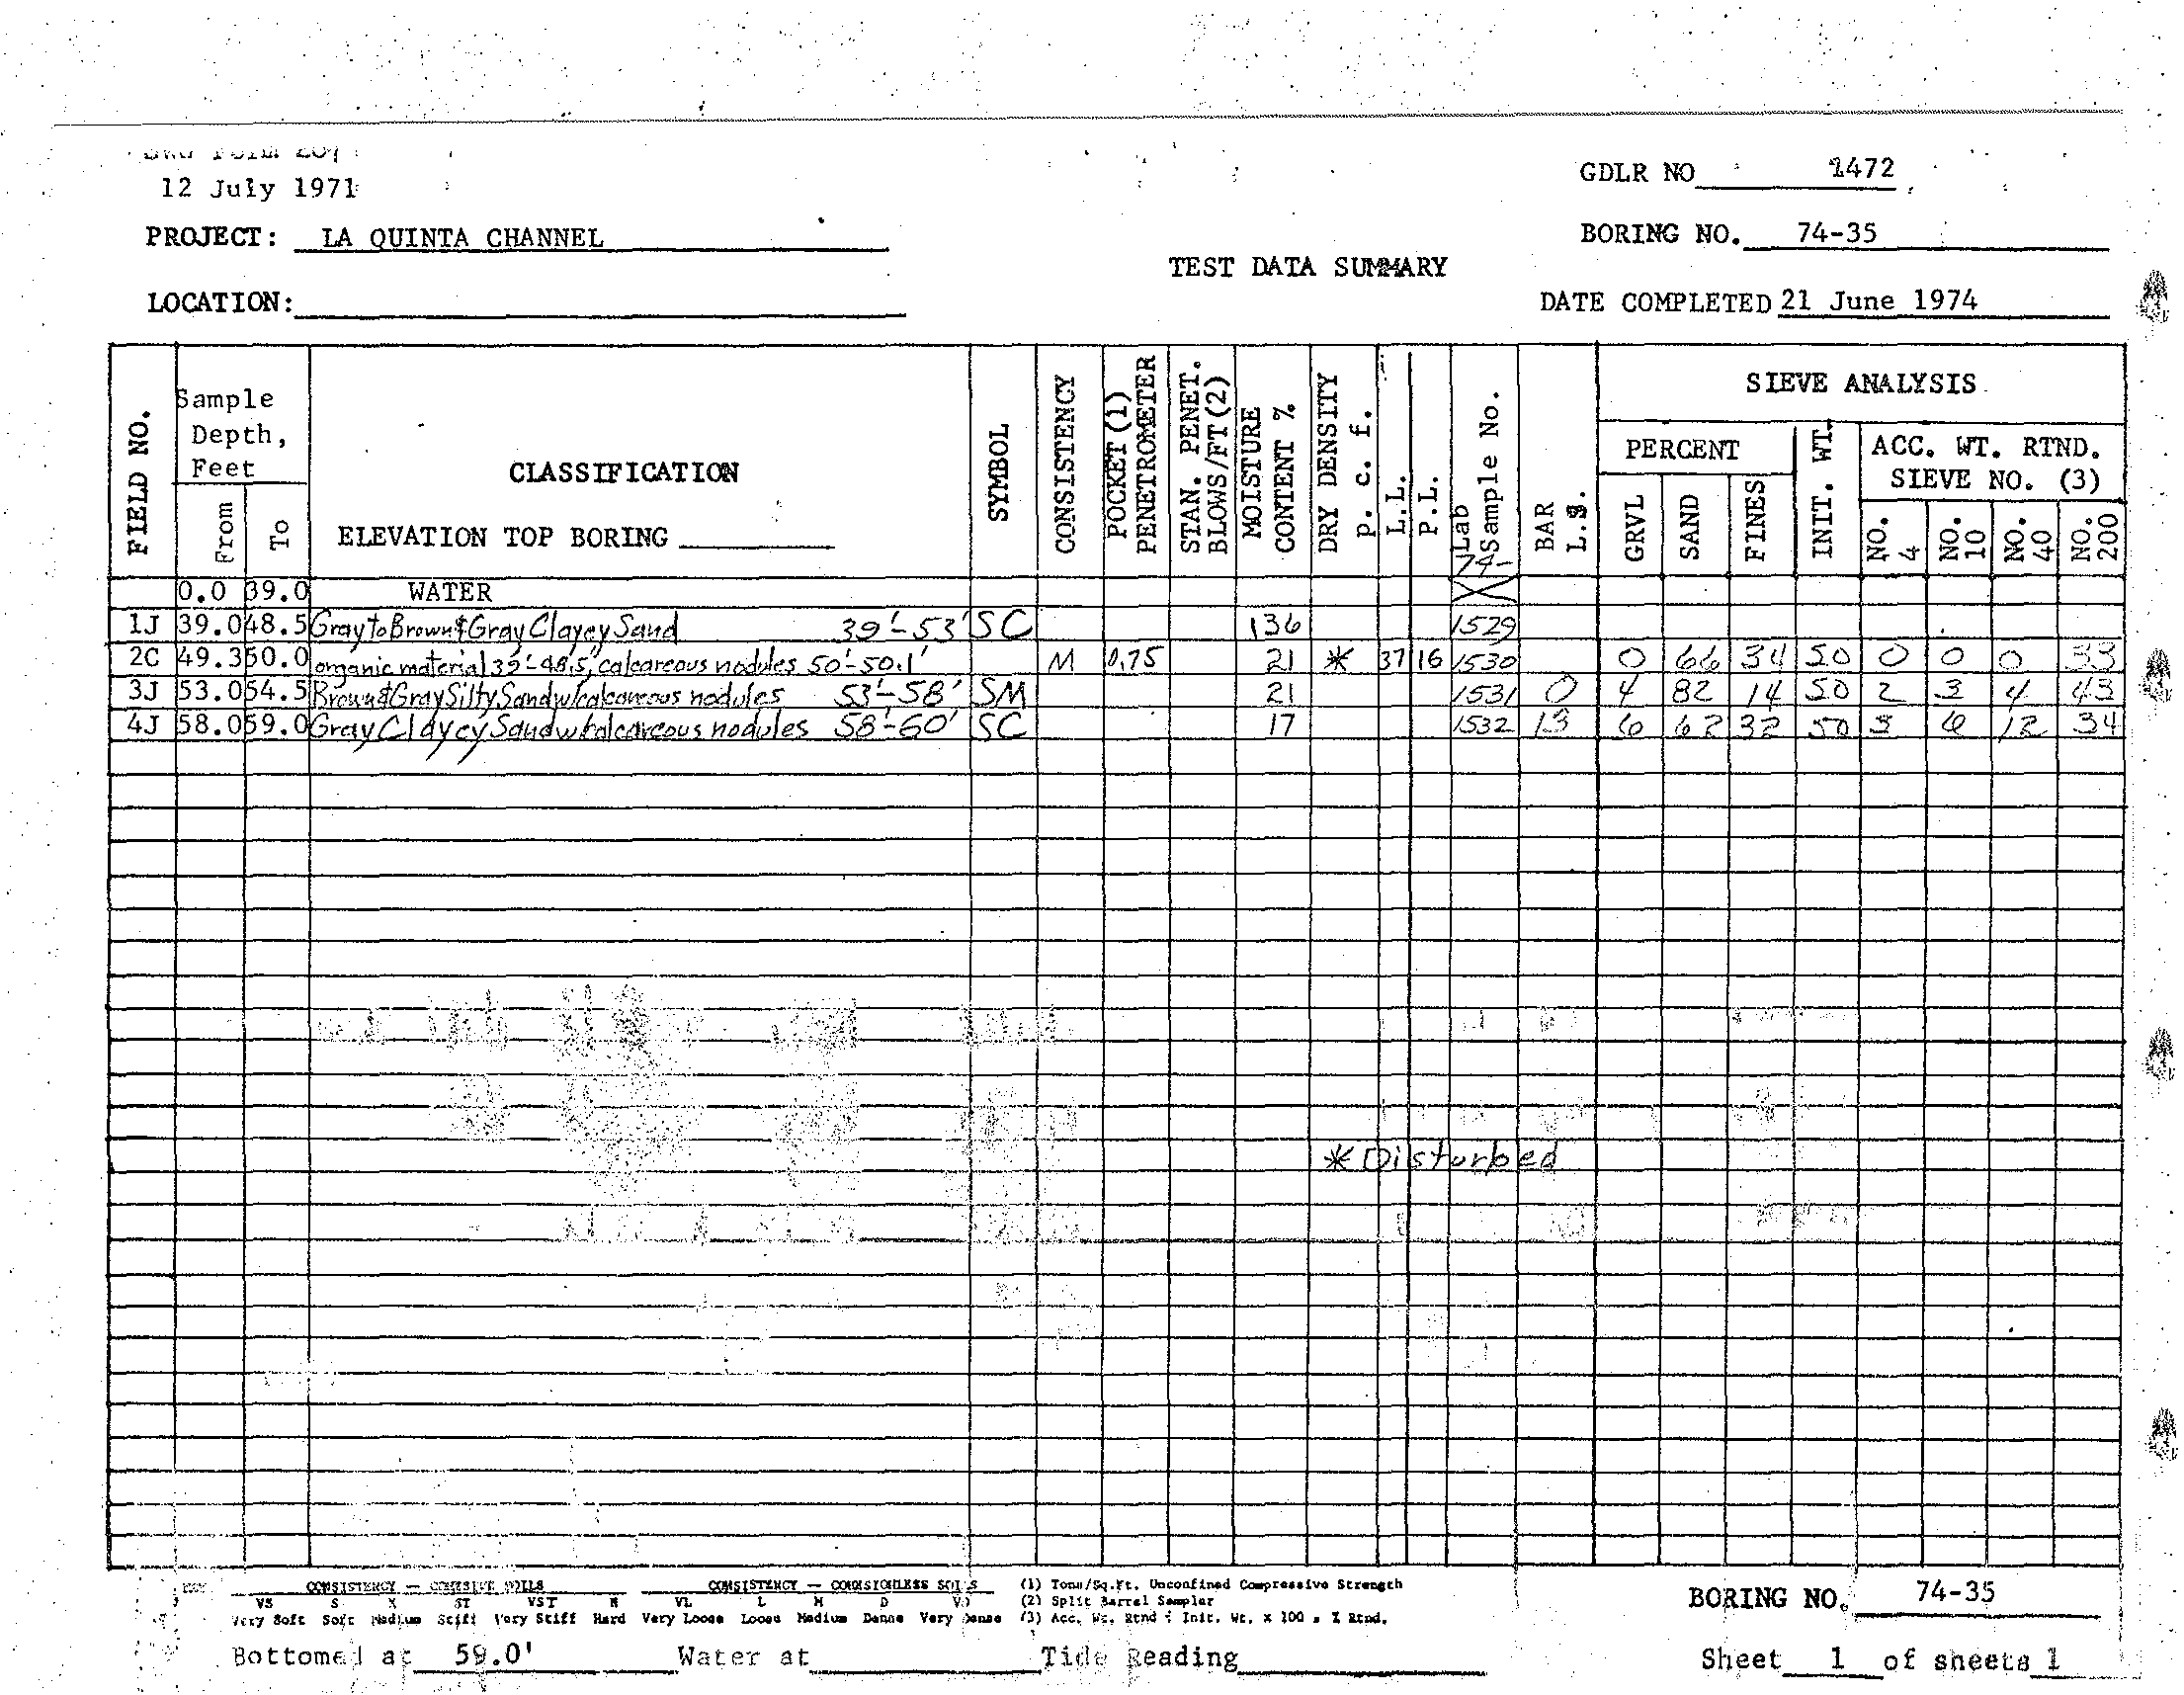 12 July 1971
GDLR NO 1472
PROJECT: LA QUINTA CHANNEL
BORING NO. 74-35
TEST DATA SUMMARY
LOCATION:
DATE COMPLETED 21 June 1974
FIELD NO. Sample Depth, Feet From To CLASSIFICATION ELEVATION TOP BORING SYMBOL CONSISTENCY POCKET (1) PENETROMETER STAN. PENET. BLOWS/FT (2) MOISTURE CONTENT % DRY DENSITY p. c. f. L.L. P.L. Lab Sample No. 74- BAR L.S. SIEVE ANALYSIS PERCENT GRVL SAND FINES INIT. WT. ACC. WT. RTND. SIEVE NO. (3) NO. 4 NO. 10 NO. 40 NO. 200
0.0 39.0 WATER
1J 39.0 48.5 Gray to Brown & Gray Clayey Sand 39'-53' SC 136 1529
2C 49.3 50.0 organic material 39'-48.5', calcareous nodules 50'-50.1' M 0.75 21 * 37 16 1530 0 66 34 50 0 0 0 33
3J 53.0 54.5 Brown & Gray Silty Sand w/calcareous nodules 53'-58' SM 21 1531 0 4 82 14 50 2 3 4 43
4J 58.0 59.0 Gray Clayey Sand w/calcareous nodules 58'-60' SC 17 1532 13 6 62 32 50 3 6 12 34
* Disturbed
CONSISTENCY — COHESIVE SOILS CONSISTENCY — COHESIONLESS SOILS (1) Tons/Sq.Ft. Unconfined Compressive Strength
VS S M ST VST H VL L M D VD (2) Split Barrel Sampler
Very Soft Soft Medium Stiff Very Stiff Hard Very Loose Loose Medium Dense Very Dense (3) Acc. Wt. Rtnd ÷ Init. Wt. x 100 = % Rtnd.
BORING NO. 74-35
Bottomed at 59.0' Water at Tide Reading Sheet 1 of sheets 1